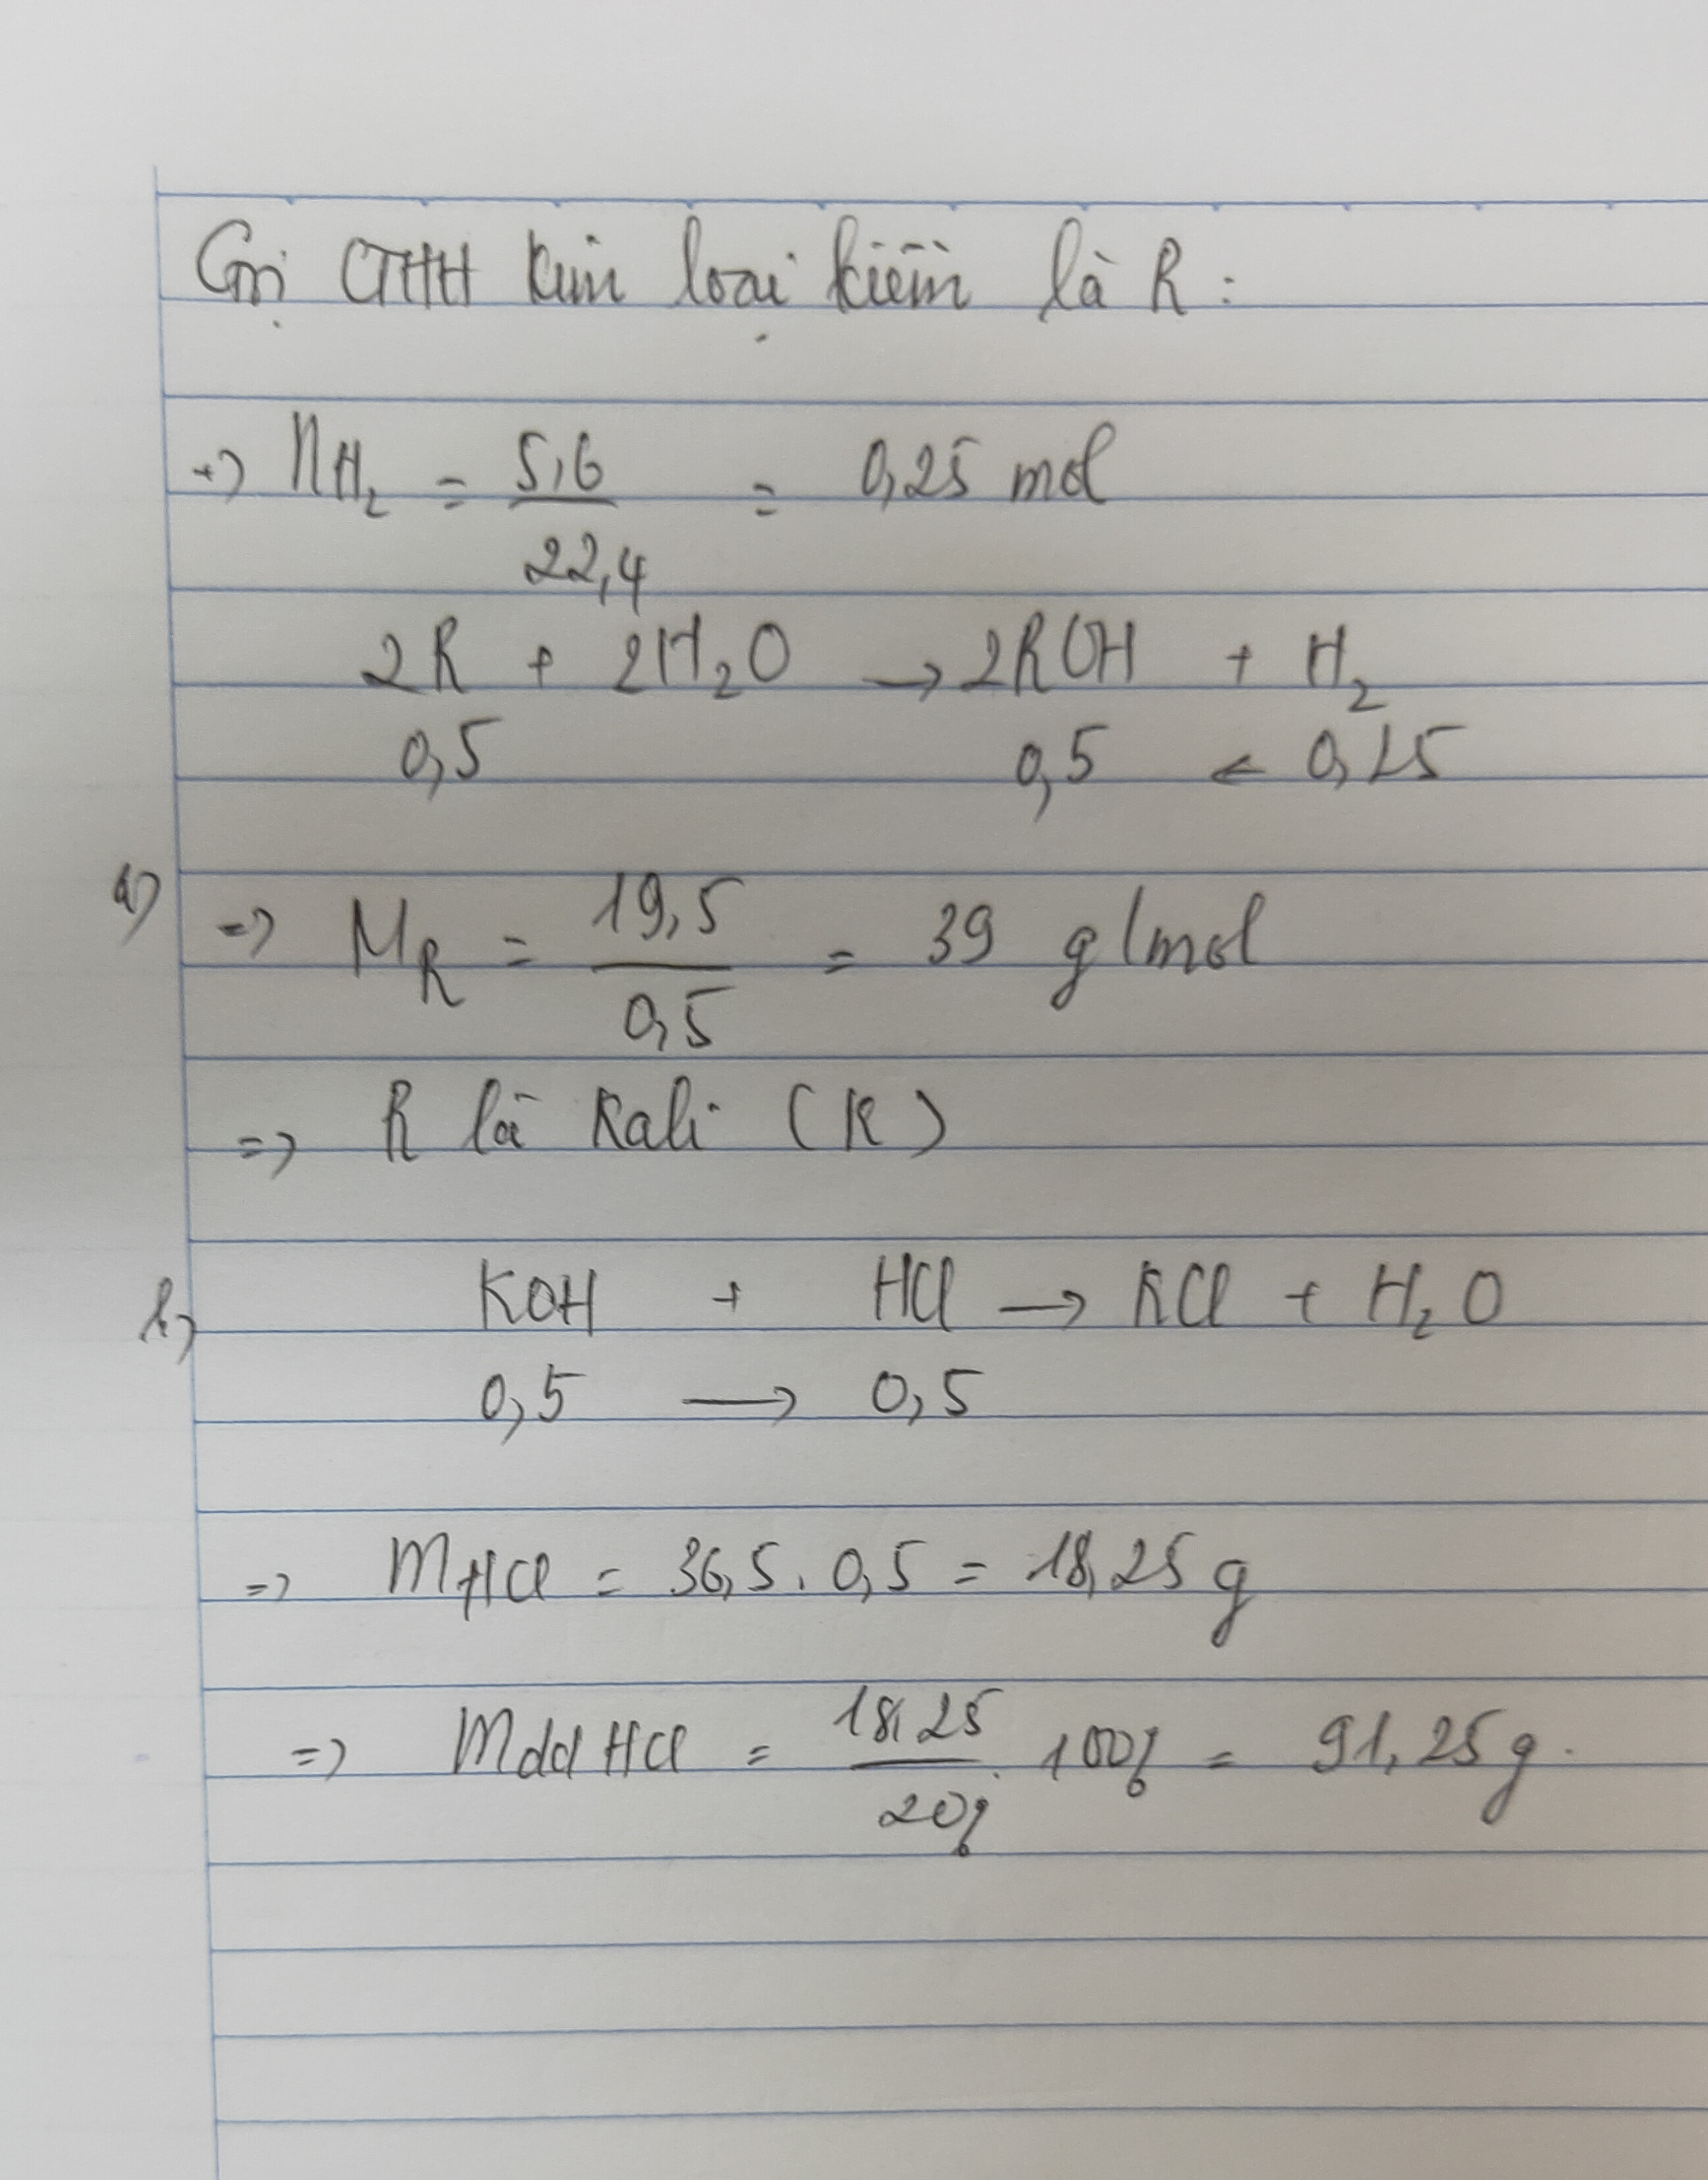 Gọi CTHH kim loại kiềm là R:
=> nH₂ = 5,6 / 22,4 = 0,25 mol
2R + 2H₂O → 2ROH + H₂
0,5 0,5 ← 0,25
a) => MR = 19,5 / 0,5 = 39 g/mol
=> R là Kali (K)
b) KOH + HCl → KCl + H₂O
0,5 → 0,5
=> mHCl = 36,5 . 0,5 = 18,25 g
=> mdd HCl = 18,25 / 20% . 100% = 91,25 g.